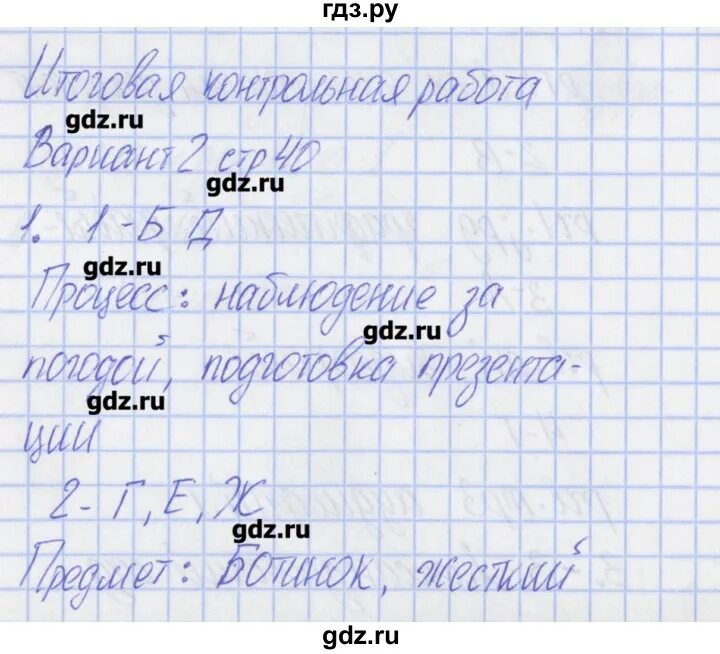 гдз.ру
Итоговая контрольная работа
gdz.ru
Вариант 2 стр 40
gdz.ru
1. 1 - Б Д
gdz.ru
Процесс: наблюдение за
gdz.ru
погодой, подготовка презента-
gdz.ru
ции
2 - Г, Е, Ж
gdz.ru
Предмет: Ботинок, жесткий
gdz.ru